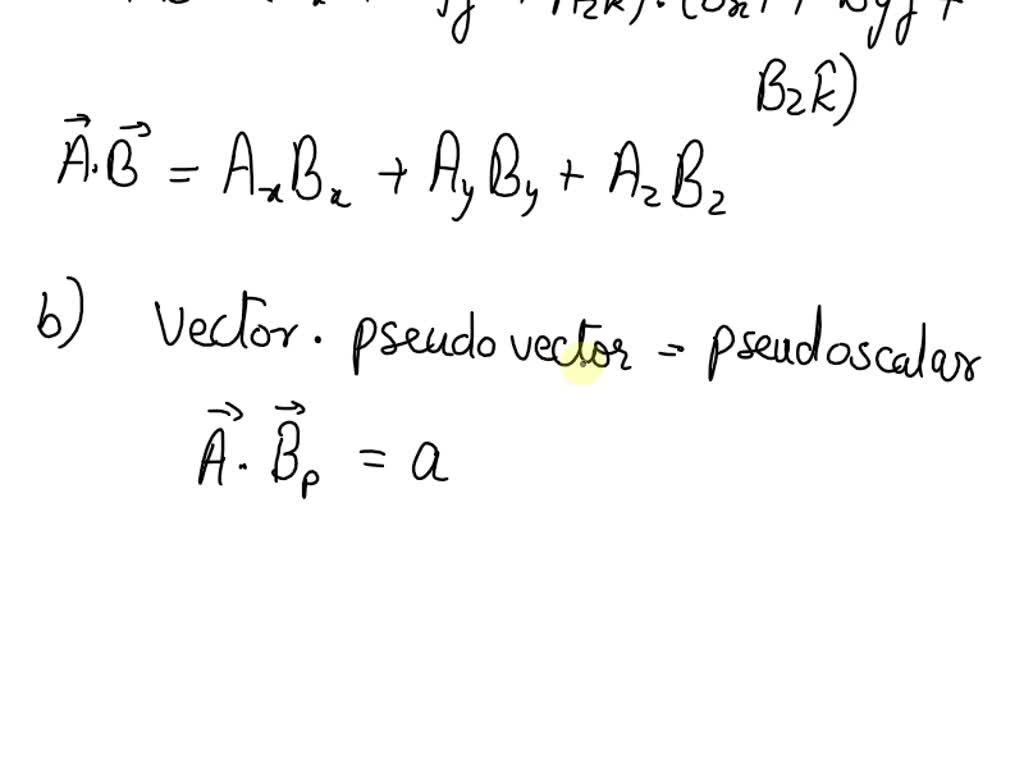 B₂k̂)
A⃗.B⃗ = AₓBₓ + A_yB_y + A₂B₂
b) Vector . pseudovector = pseudoscalar
A⃗. B⃗ₚ = a